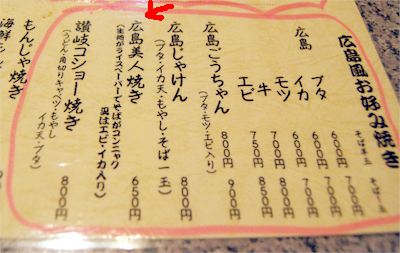 広島風お好み焼き
そば半玉 そば一玉
広島 ブタ 600円 700円
イカ 600円 700円
モツ 600円 700円
キ 700円 800円
エビ 750円 850円
広島ごうちゃん 800円 900円
(ブタ・モツ・エビ入り)
広島じゃけん 800円
(ブタ・イカ天・もやし・そば一玉)
広島美人焼き 650円
(生地がライスペーパーでそばがコンニャク
具はエビ・イカ入り)
讃岐コショー焼き 800円
(うどん・角切りキャベツ・もやし
イカ天・ブタ)
もんじゃ焼き
海鮮もん